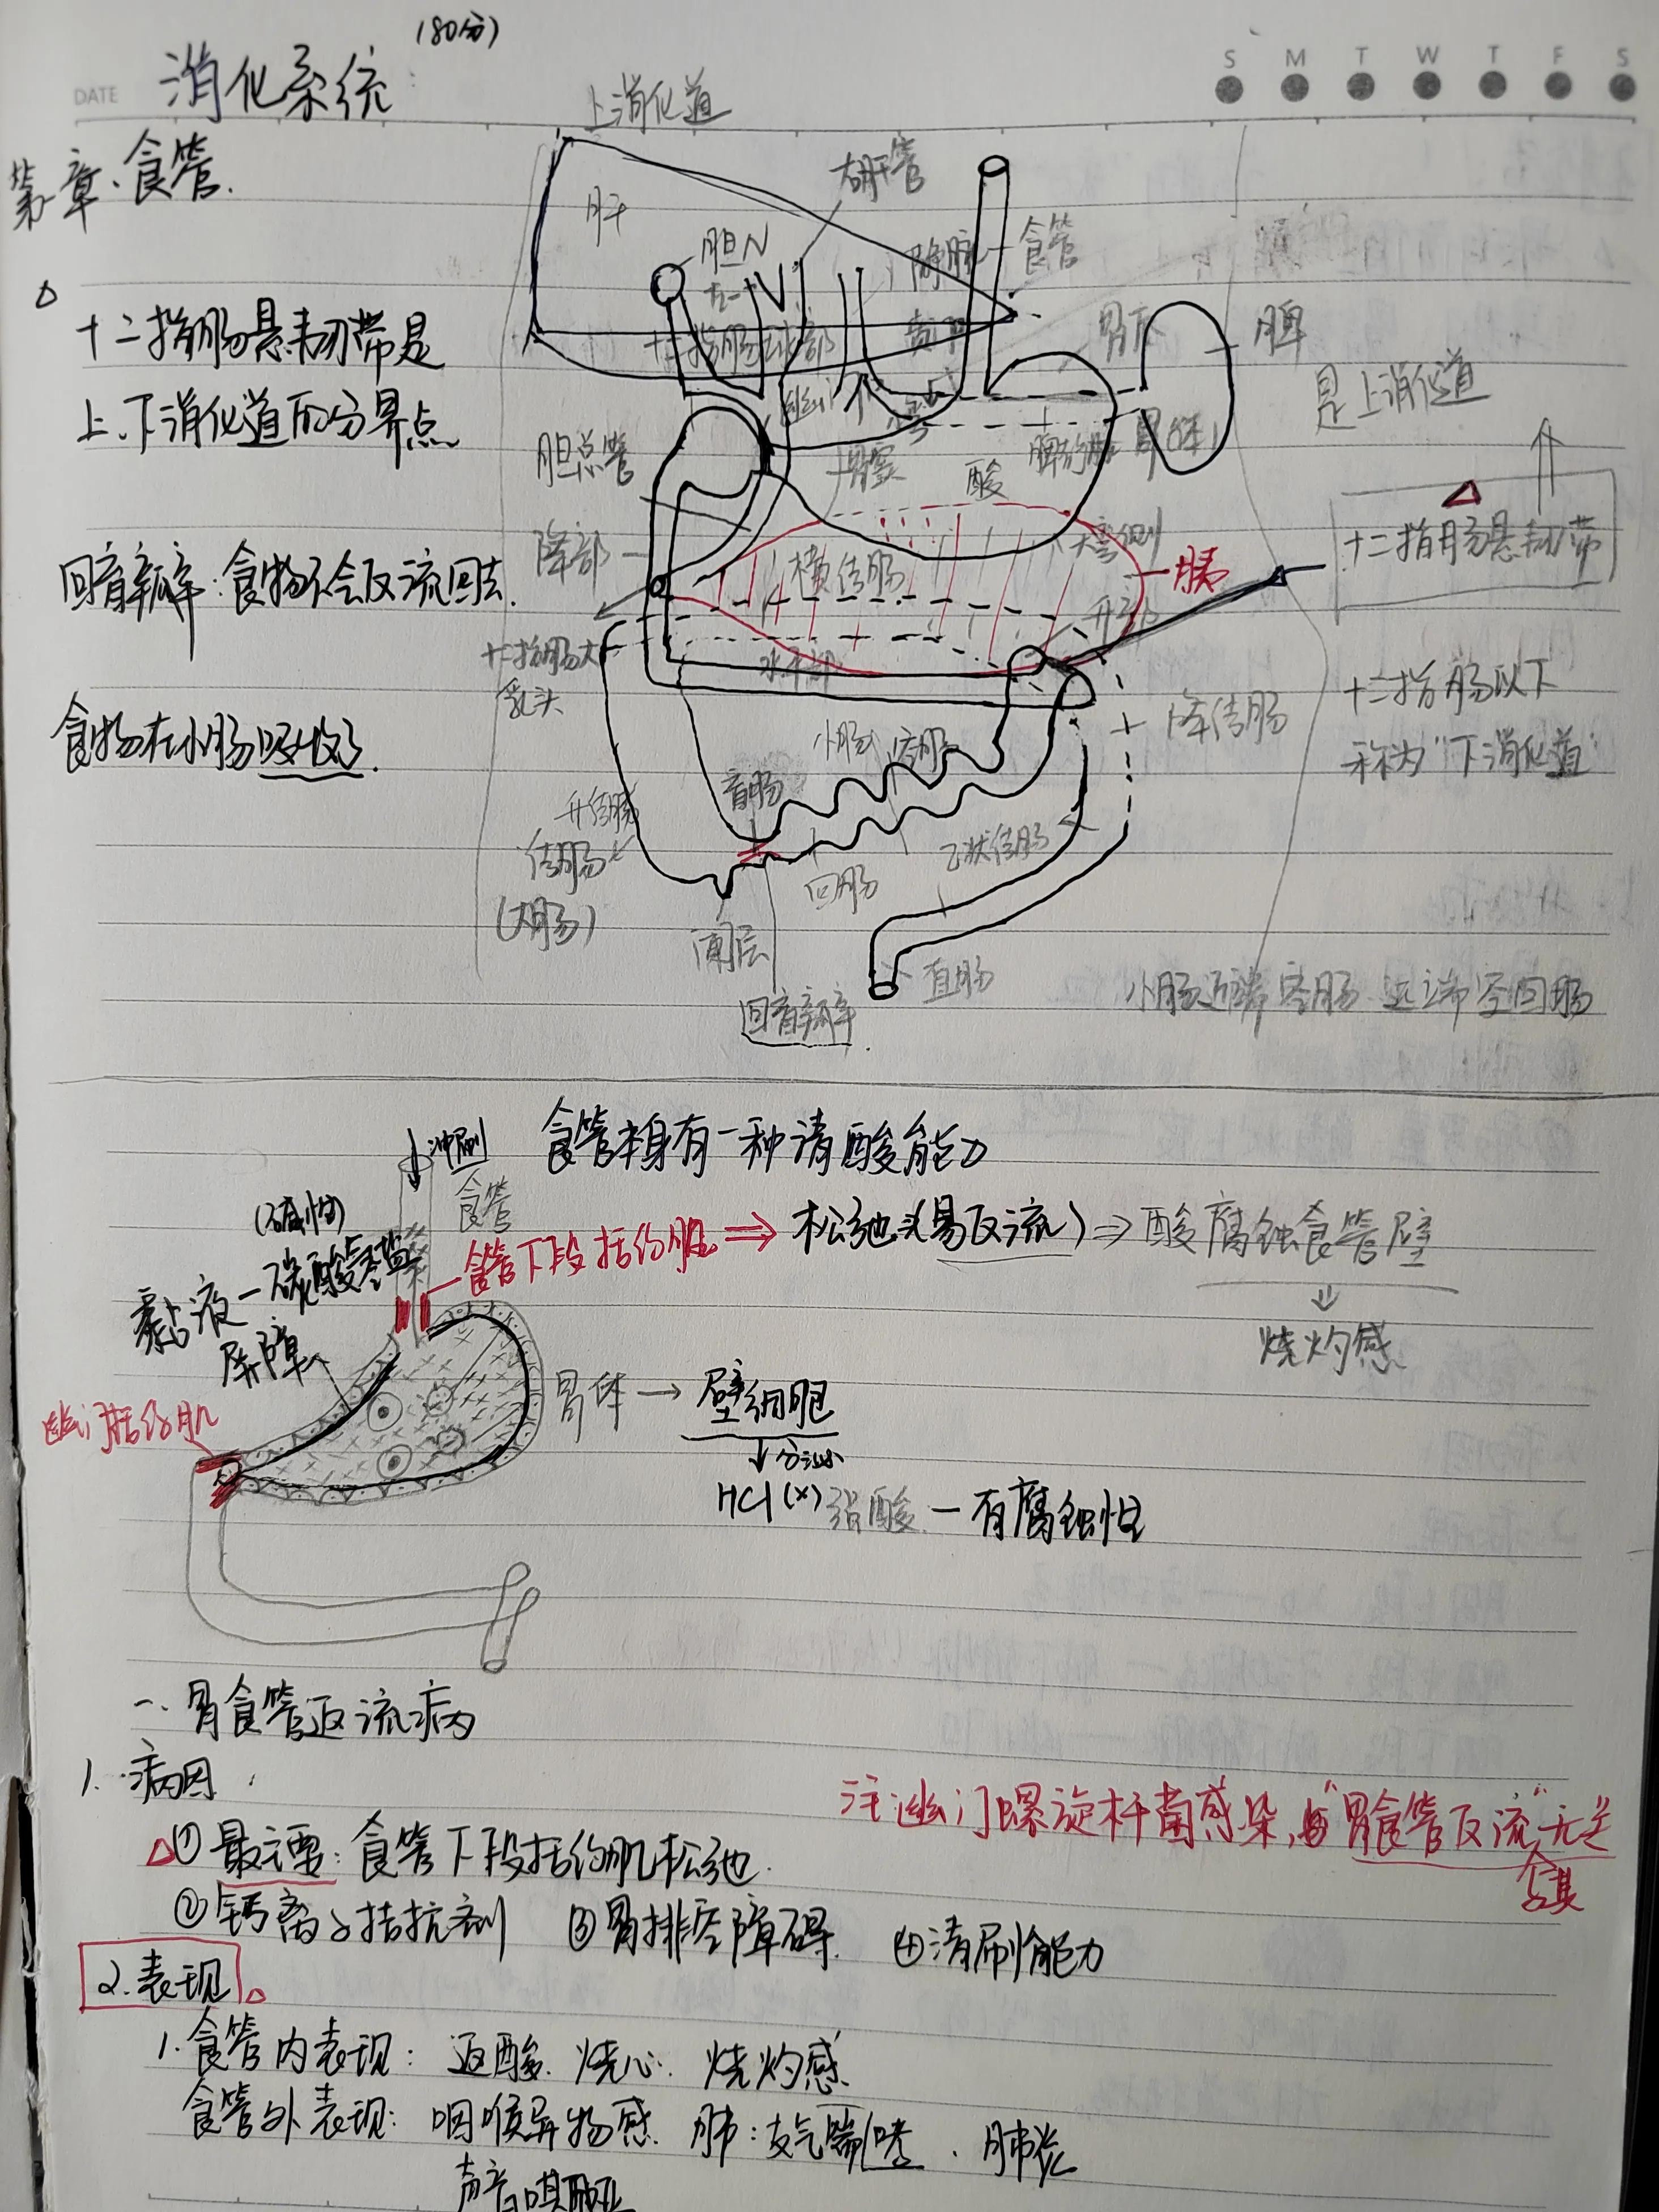 (80分)
DATE 消化系统:
S M T W T F S
上消化道
第一章、食管.
肝
大肝管
胆N
食管
十二指肠悬韧带是
上、下消化道的分界点
十二指肠球部
胃底
脾
是上消化道
胆总管
胃窦
酸
胃(体)
十二指肠悬韧带
降部
大弯侧
回盲瓣:食物不会反流回去.
横结肠
胰
升部
十二指肠大
乳头
水平部
十二指肠以下
称为"下消化道"
降结肠
食物在小肠吸收.
小肠 空肠
盲肠
升结肠
结肠
(大肠)
回肠
乙状结肠
阑尾
直肠
回盲瓣
小肠近端空肠 远端空回肠
冲刷
食管本身有一种清酸能力
食管
(碱性)
食管下段括约肌 ⇒ 松弛(易反流) ⇒ 酸腐蚀食管壁
⇓
烧灼感
黏液-碳酸氢盐
屏障
幽门括约肌
胃体 → 壁细胞
↓分泌
HCl(x) 强酸 - 有腐蚀性
一. 胃食管返流病
1. 病因
注:幽门螺旋杆菌感染,与"胃食管反流"无关
△① 最主要: 食管下段括约肌松弛.
②钙离子拮抗剂 ③胃排空障碍. ④清刷能力
2.表现
1.食管内表现: 返酸. 烧心. 烧灼感
食管外表现: 咽喉异物感. 肺:支气喘哮. 肺炎
声音嘶哑